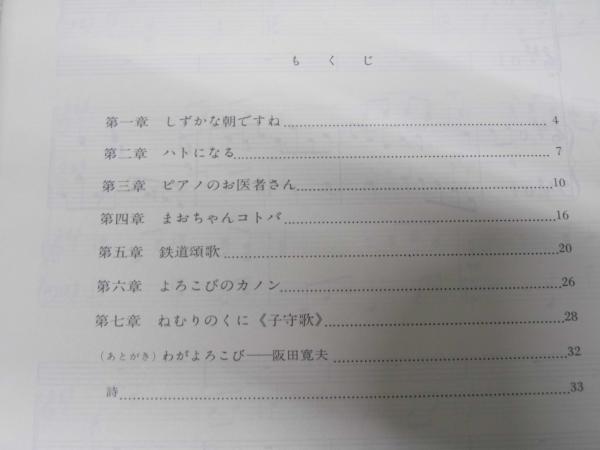 もくじ
第一章 しずかな朝ですね……4
第二章 ハトになる……7
第三章 ピアノのお医者さん……10
第四章 まおちゃんコトバ……16
第五章 鉄道頌歌……20
第六章 よろこびのカノン……26
第七章 ねむりのくに《子守歌》……28
（あとがき）わがよろこび――阪田寛夫……32
詩……33